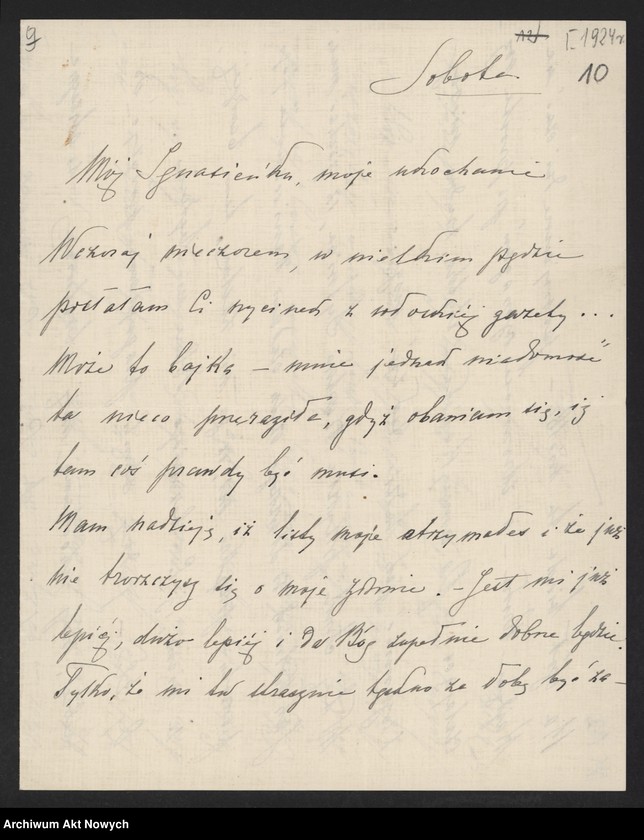 9
12 I. 1924 r.
10
Sobota.
Mój Ignasieńku, moje ukochanie
Wczoraj wieczorem, w wielkim pędzie
posłałam Ci wycinek z gazety...
Może to bajka – mnie jednak wiadomość
ta nieco przeraziła, gdyż obawiam się, iż
tam coś prawdy być musi.
Mam nadzieję, iż listy moje otrzymałeś i że już
nie troszczysz się o moje zdrowie. – Jest mi już
lepiéj, dużo lepiéj i da Bóg zupełnie dobrze będzie.
Tylko, że mi tu strasznie trudno za dobę być za-
Archiwum Akt Nowych